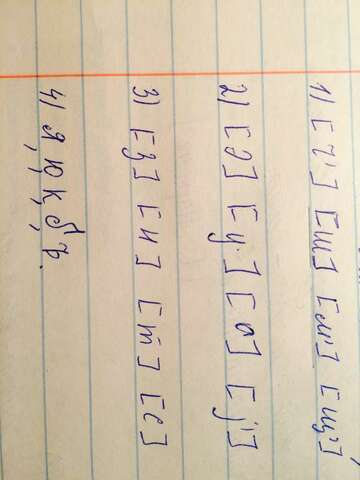 1) [ч'] [ш] [м'] [щ']
2) [э] [у] [о] [j']
3) [з] [и] [т] [с]
4) я, ю, к, б, ъ.